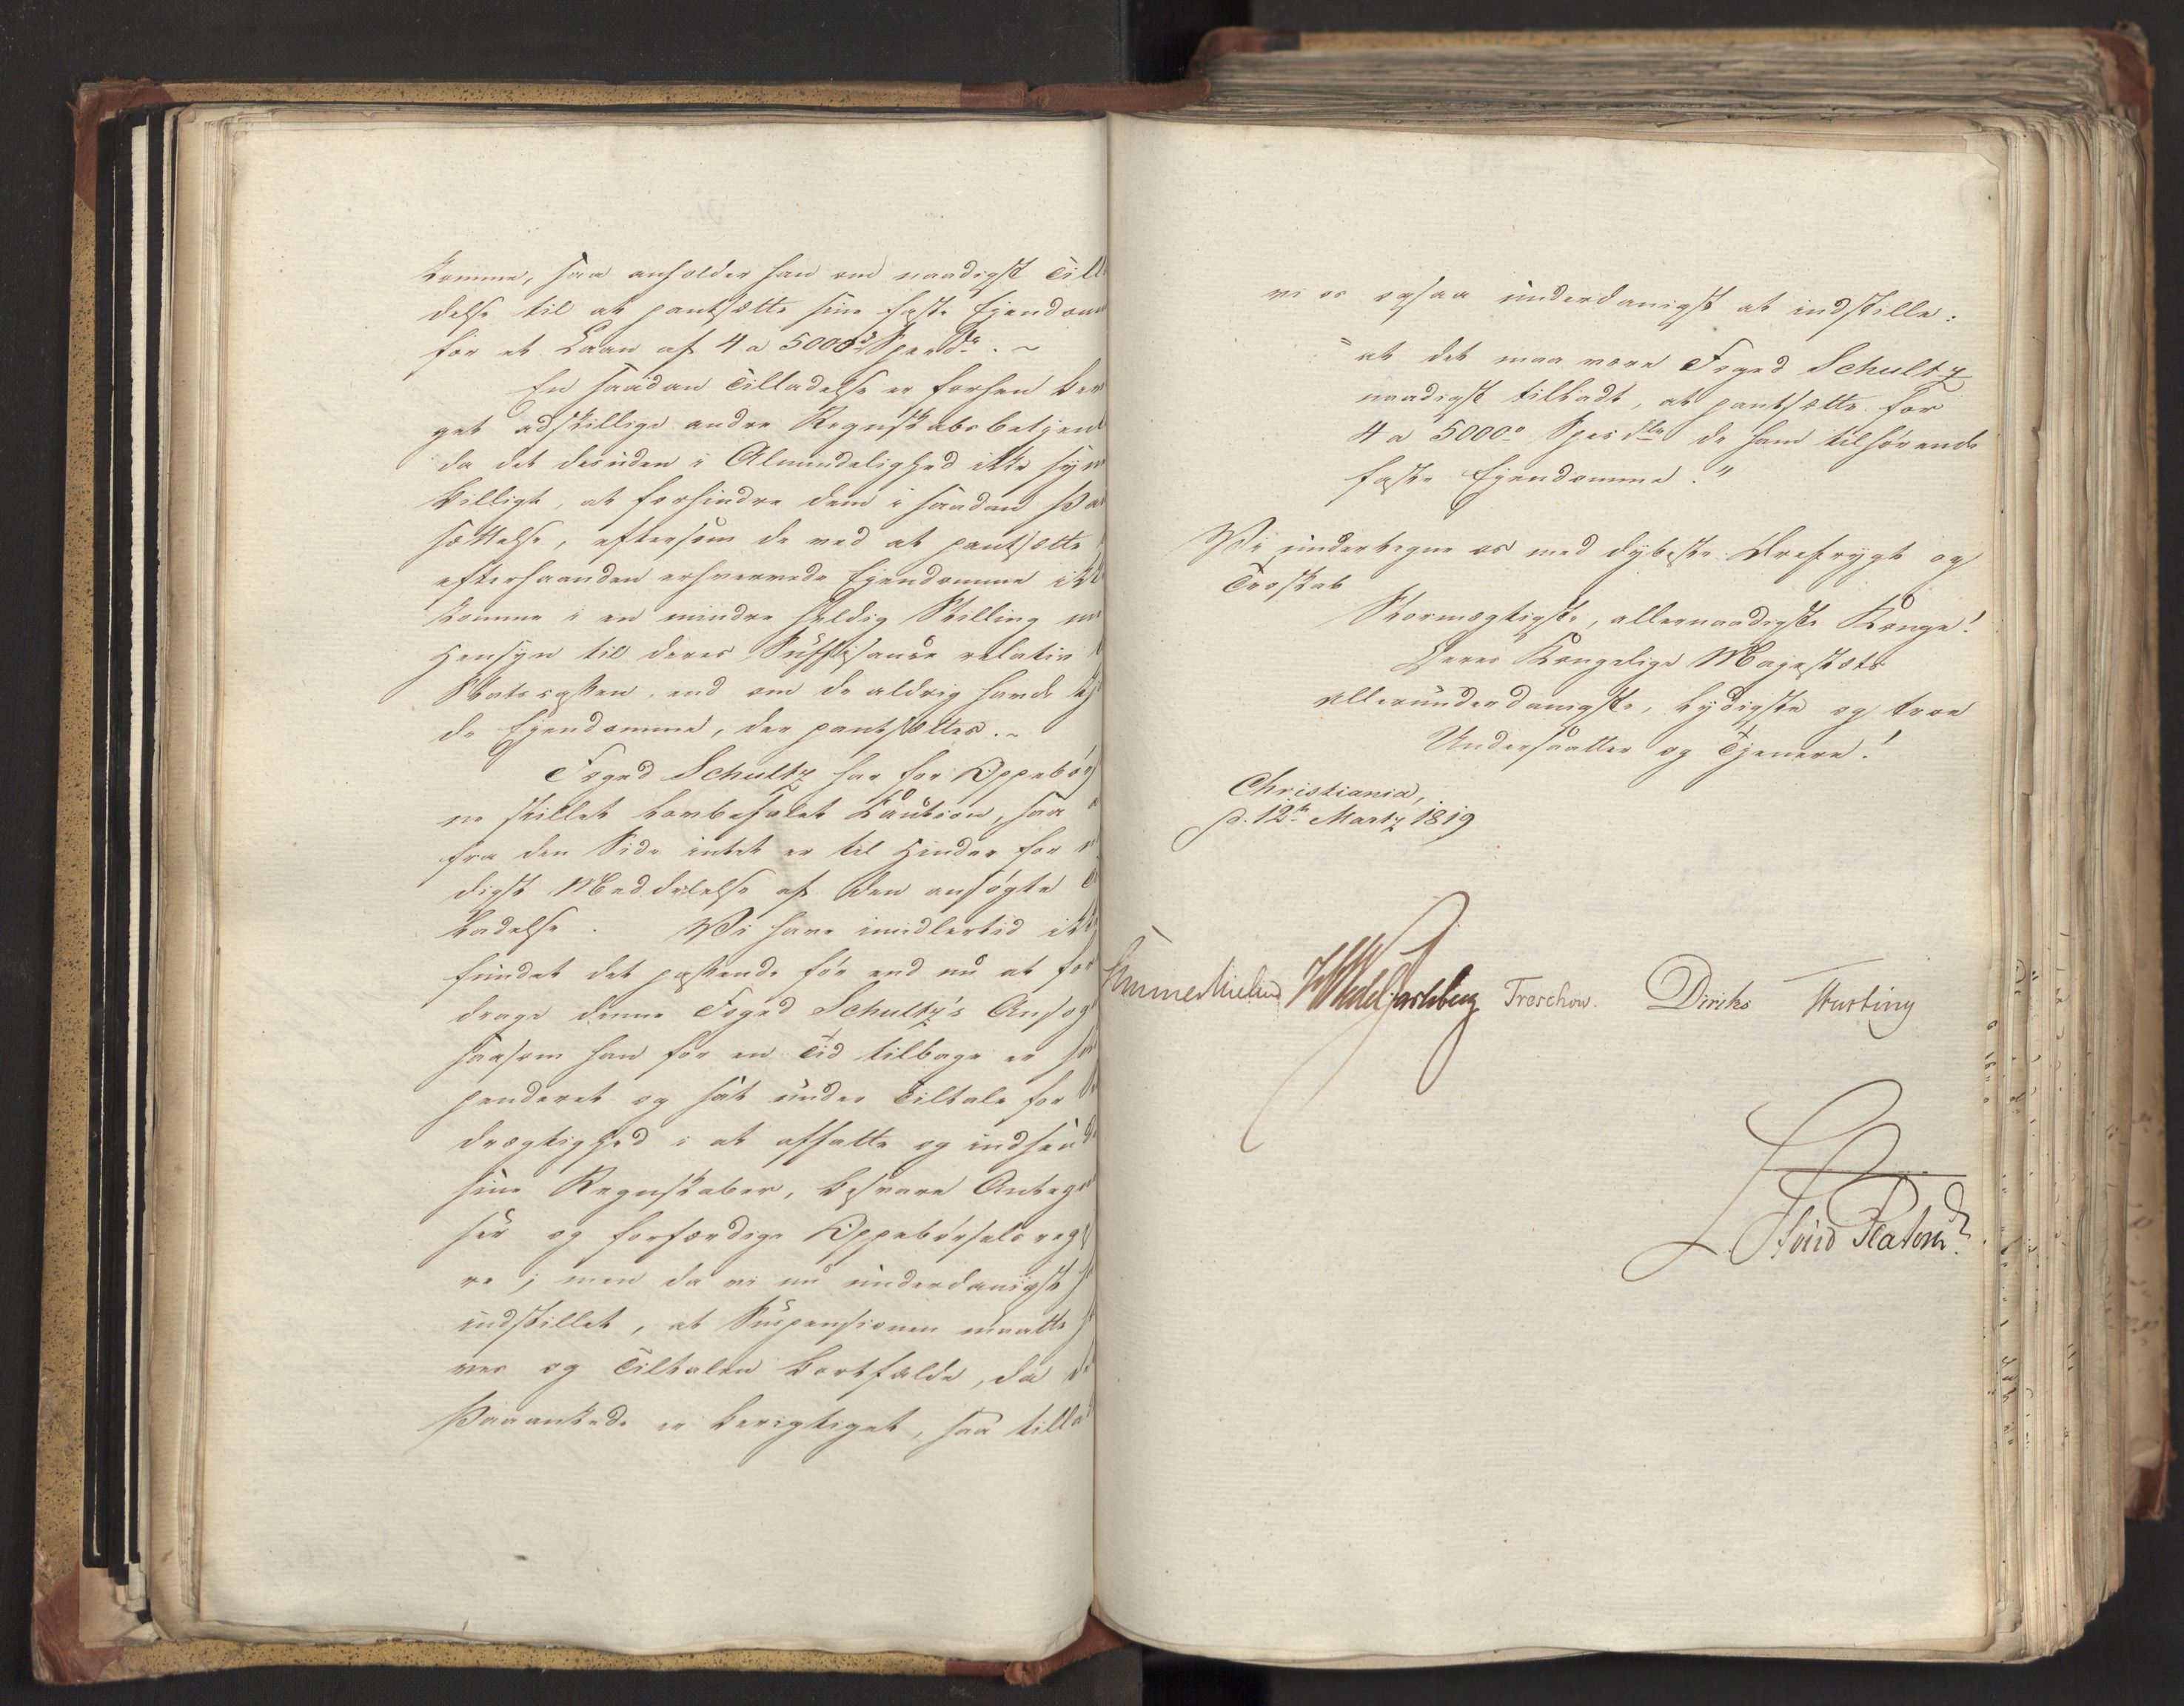 komme, saa anholder han om naadigst Till
delse til at pantsætte sine faste Ejendom
for et Laan af 4 a 5000 Specd.
En saadan Tilladelse er forhen bevi
get adskillige andre Regnskabsbetjent
da det desuden i Almindelighed ikke syn
billigt, at forhindre dem i saadan Pa
sættelse, eftersom de ved at pantsætte
efterhaanden erhvervede Ejendomme ikk
komme i en mindre heldig Stilling m
Hensyn til deres Suffisance relativ
Statscassen, end om de aldrig havde ej
de Ejendomme, der pantsættes.
Foged Schultz har for Oppebør
ne stillet lovbefalet Caution, saa
fra den Side intet er til Hinder for n
digst Meddelelse af den ansøgte Ti
ladelse. Vi have imidlertid ikke
fundet det passende før end nu at for
drage denne Foged Schultz's Ansøg
saasom han for en Tid tilbage er su
penderet og sat under Tiltale for
drægtighed i at affatte og indsend
sine Regnskaber, besvare Antegn
ser og forfærdige Oppebørsels reg
re; men da vi nu underdanigst h
indstillet, at Suspensionen maatte h
ves og Tiltalen bortfalde, da d
Paaankede er berigtiget, saa tilla
vi os ogsaa underdanigst at indstille:
"at det maa være Foged Schultz
naadigst tilladt, at pantsætte for
4 a 5000 Specdlr de ham tilhørende
faste Ejendomme."
Vi undertegne os med dybeste Ærefrygt og
Troskab
Stormægtigste, allernaadigste Konge!
Deres Kongelige Majestæts
allerunderdanigste, lydigste og troe
Undersaatter og Tjenere!
Christiania,
d. 12te Martz 1819
Sommerhielm HWedel Jarlsberg Treschow. Diriks Fasting
L. Stoud Platou